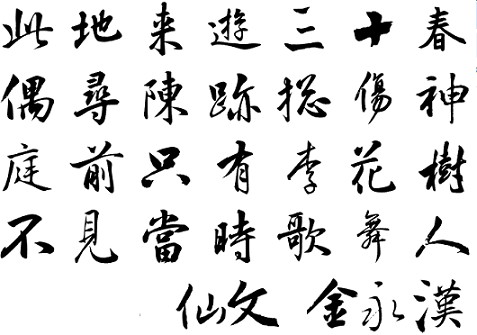 此地来遊三十春
偶尋陳跡揔傷神
庭前只有李花樹
不見當時歌舞人
仙文 金永漢